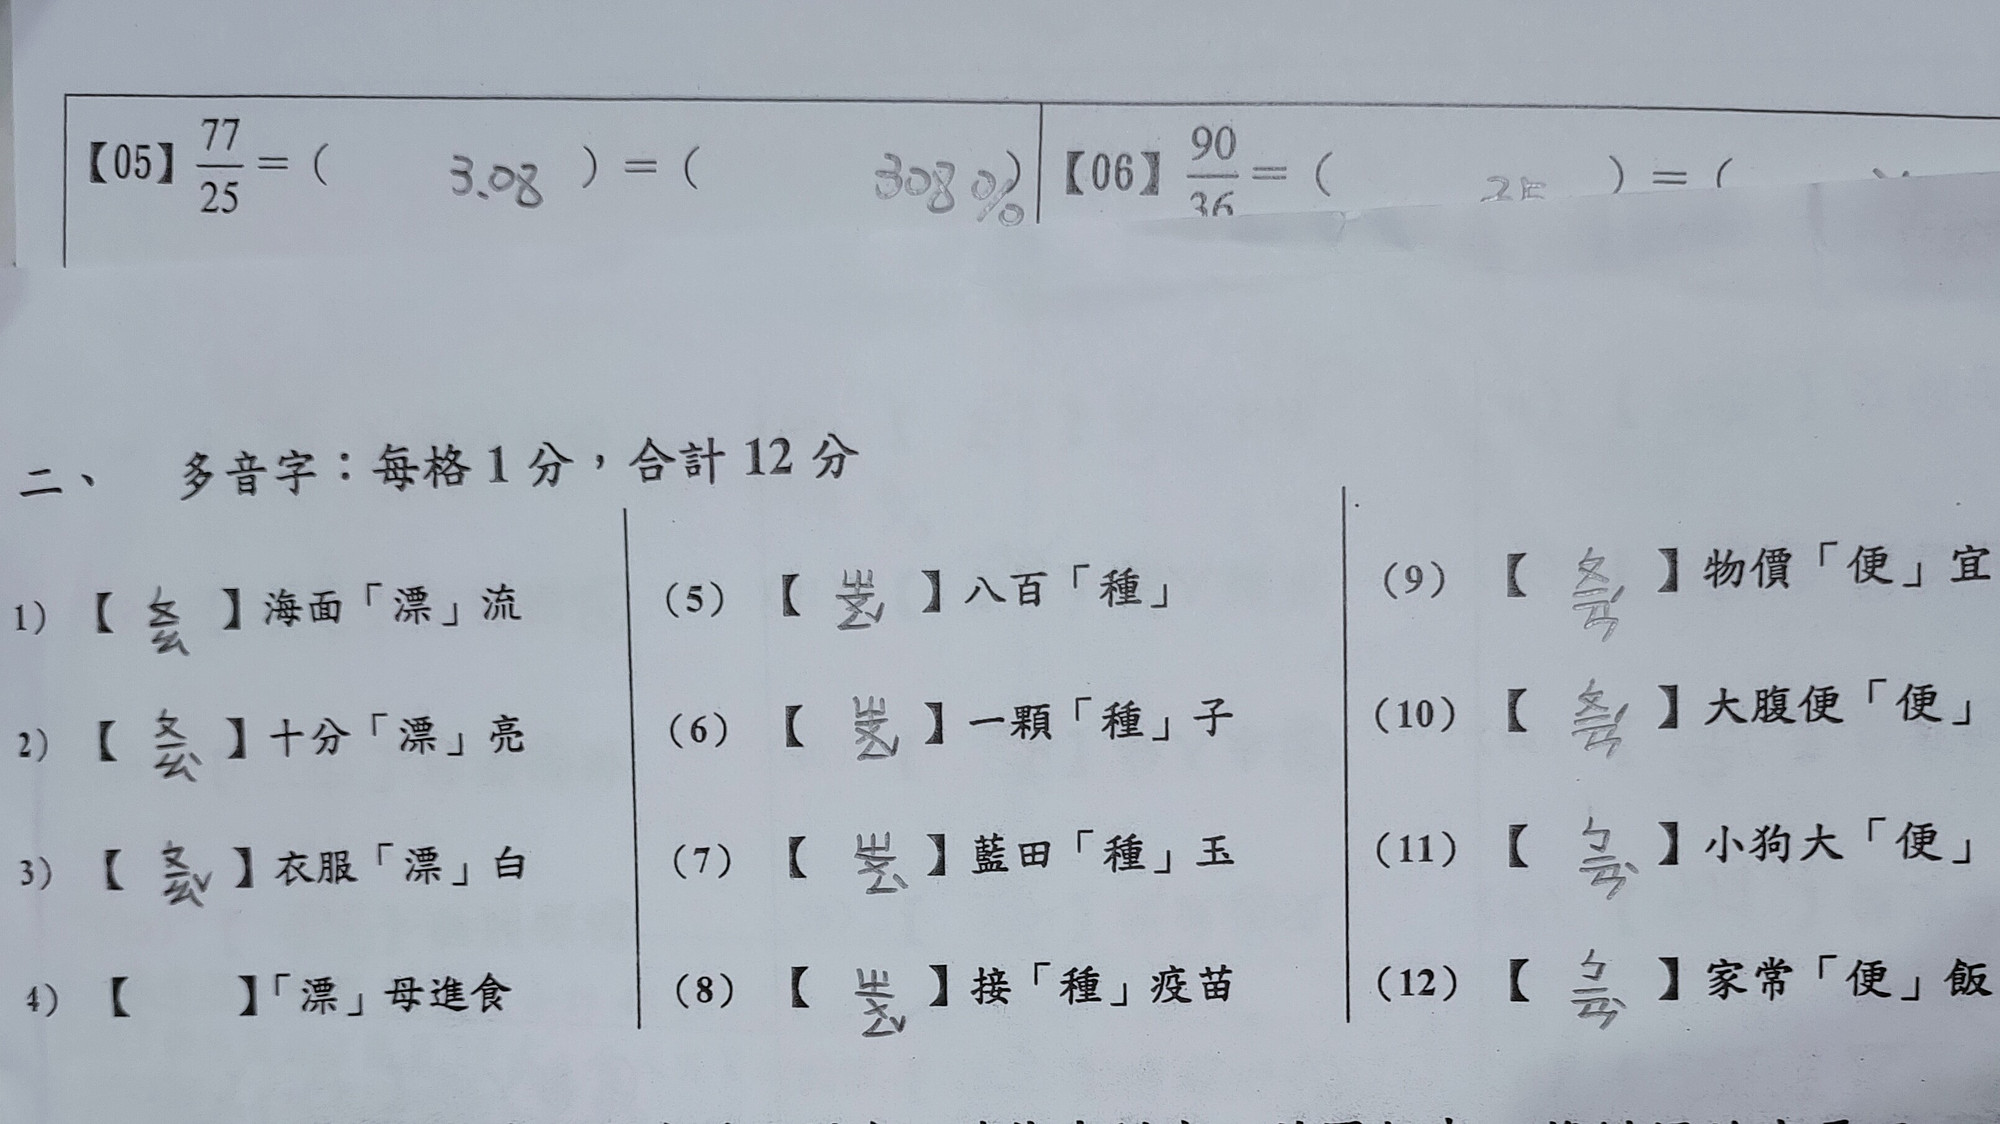 【05】77/25=( 3.08 )=( 308% ) 【06】90/36=( )=(
二、 多音字：每格1分，合計12分
1) 【ㄆㄧㄠ】海面「漂」流 (5) 【ㄓㄨㄥˇ】八百「種」 (9) 【ㄆㄧㄢˊ】物價「便」宜
2) 【ㄆㄧㄠˋ】十分「漂」亮 (6) 【ㄓㄨㄥˇ】一顆「種」子 (10) 【ㄆㄧㄢˊ】大腹便「便」
3) 【ㄆㄧㄠˇ】衣服「漂」白 (7) 【ㄓㄨㄥˋ】藍田「種」玉 (11) 【ㄅㄧㄢˋ】小狗大「便」
4) 【 】「漂」母進食 (8) 【ㄓㄨㄥˇ】接「種」疫苗 (12) 【ㄅㄧㄢˋ】家常「便」飯